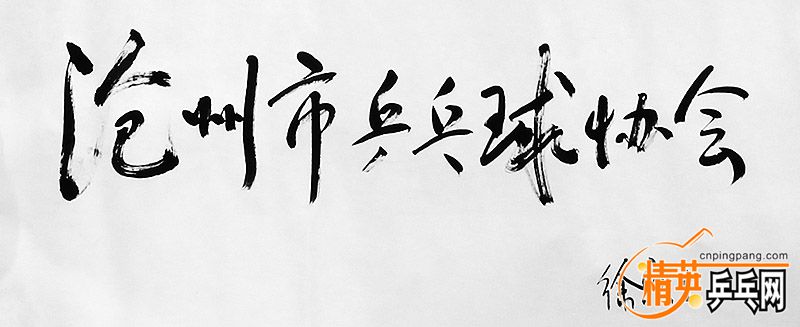 沧州市乒乓球协会
徐
cnpingpang.com
精英乒乓网